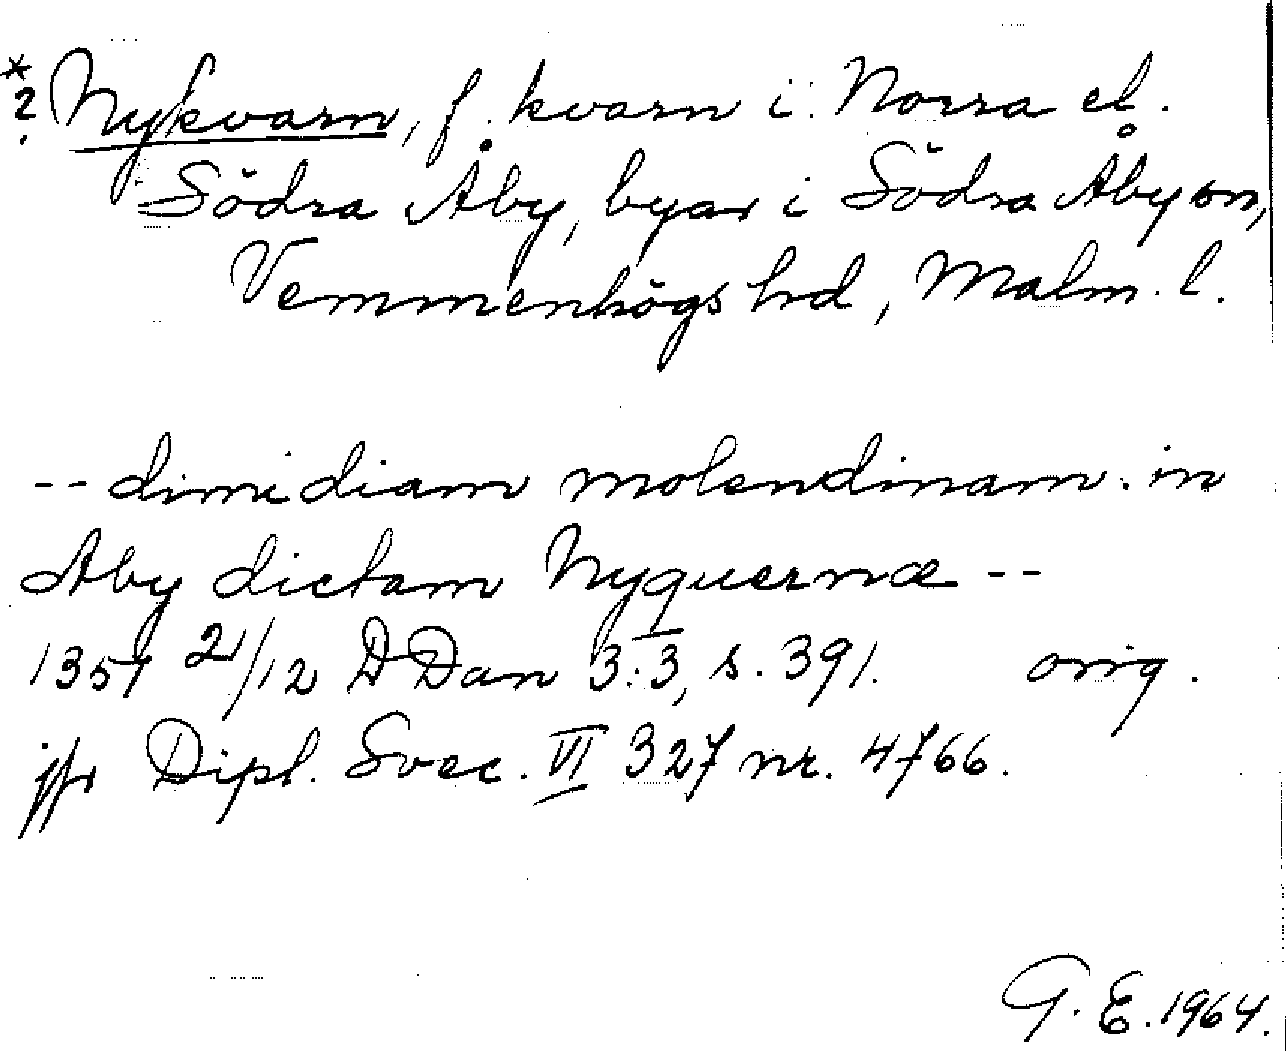 *? Nykvarn, f. kvarn i Norra el.
Södra Åby, byar i Södra Åby sn,
Vemmenhögs hd, Malm. l.
-- dimidiam molendinam in
Aby dictam Nyquernæ --
1351 21/12 D Dan 3:3, s. 391. orig.
jfr Dipl. Svec. VI 327 nr. 4766.
G. E. 1964.